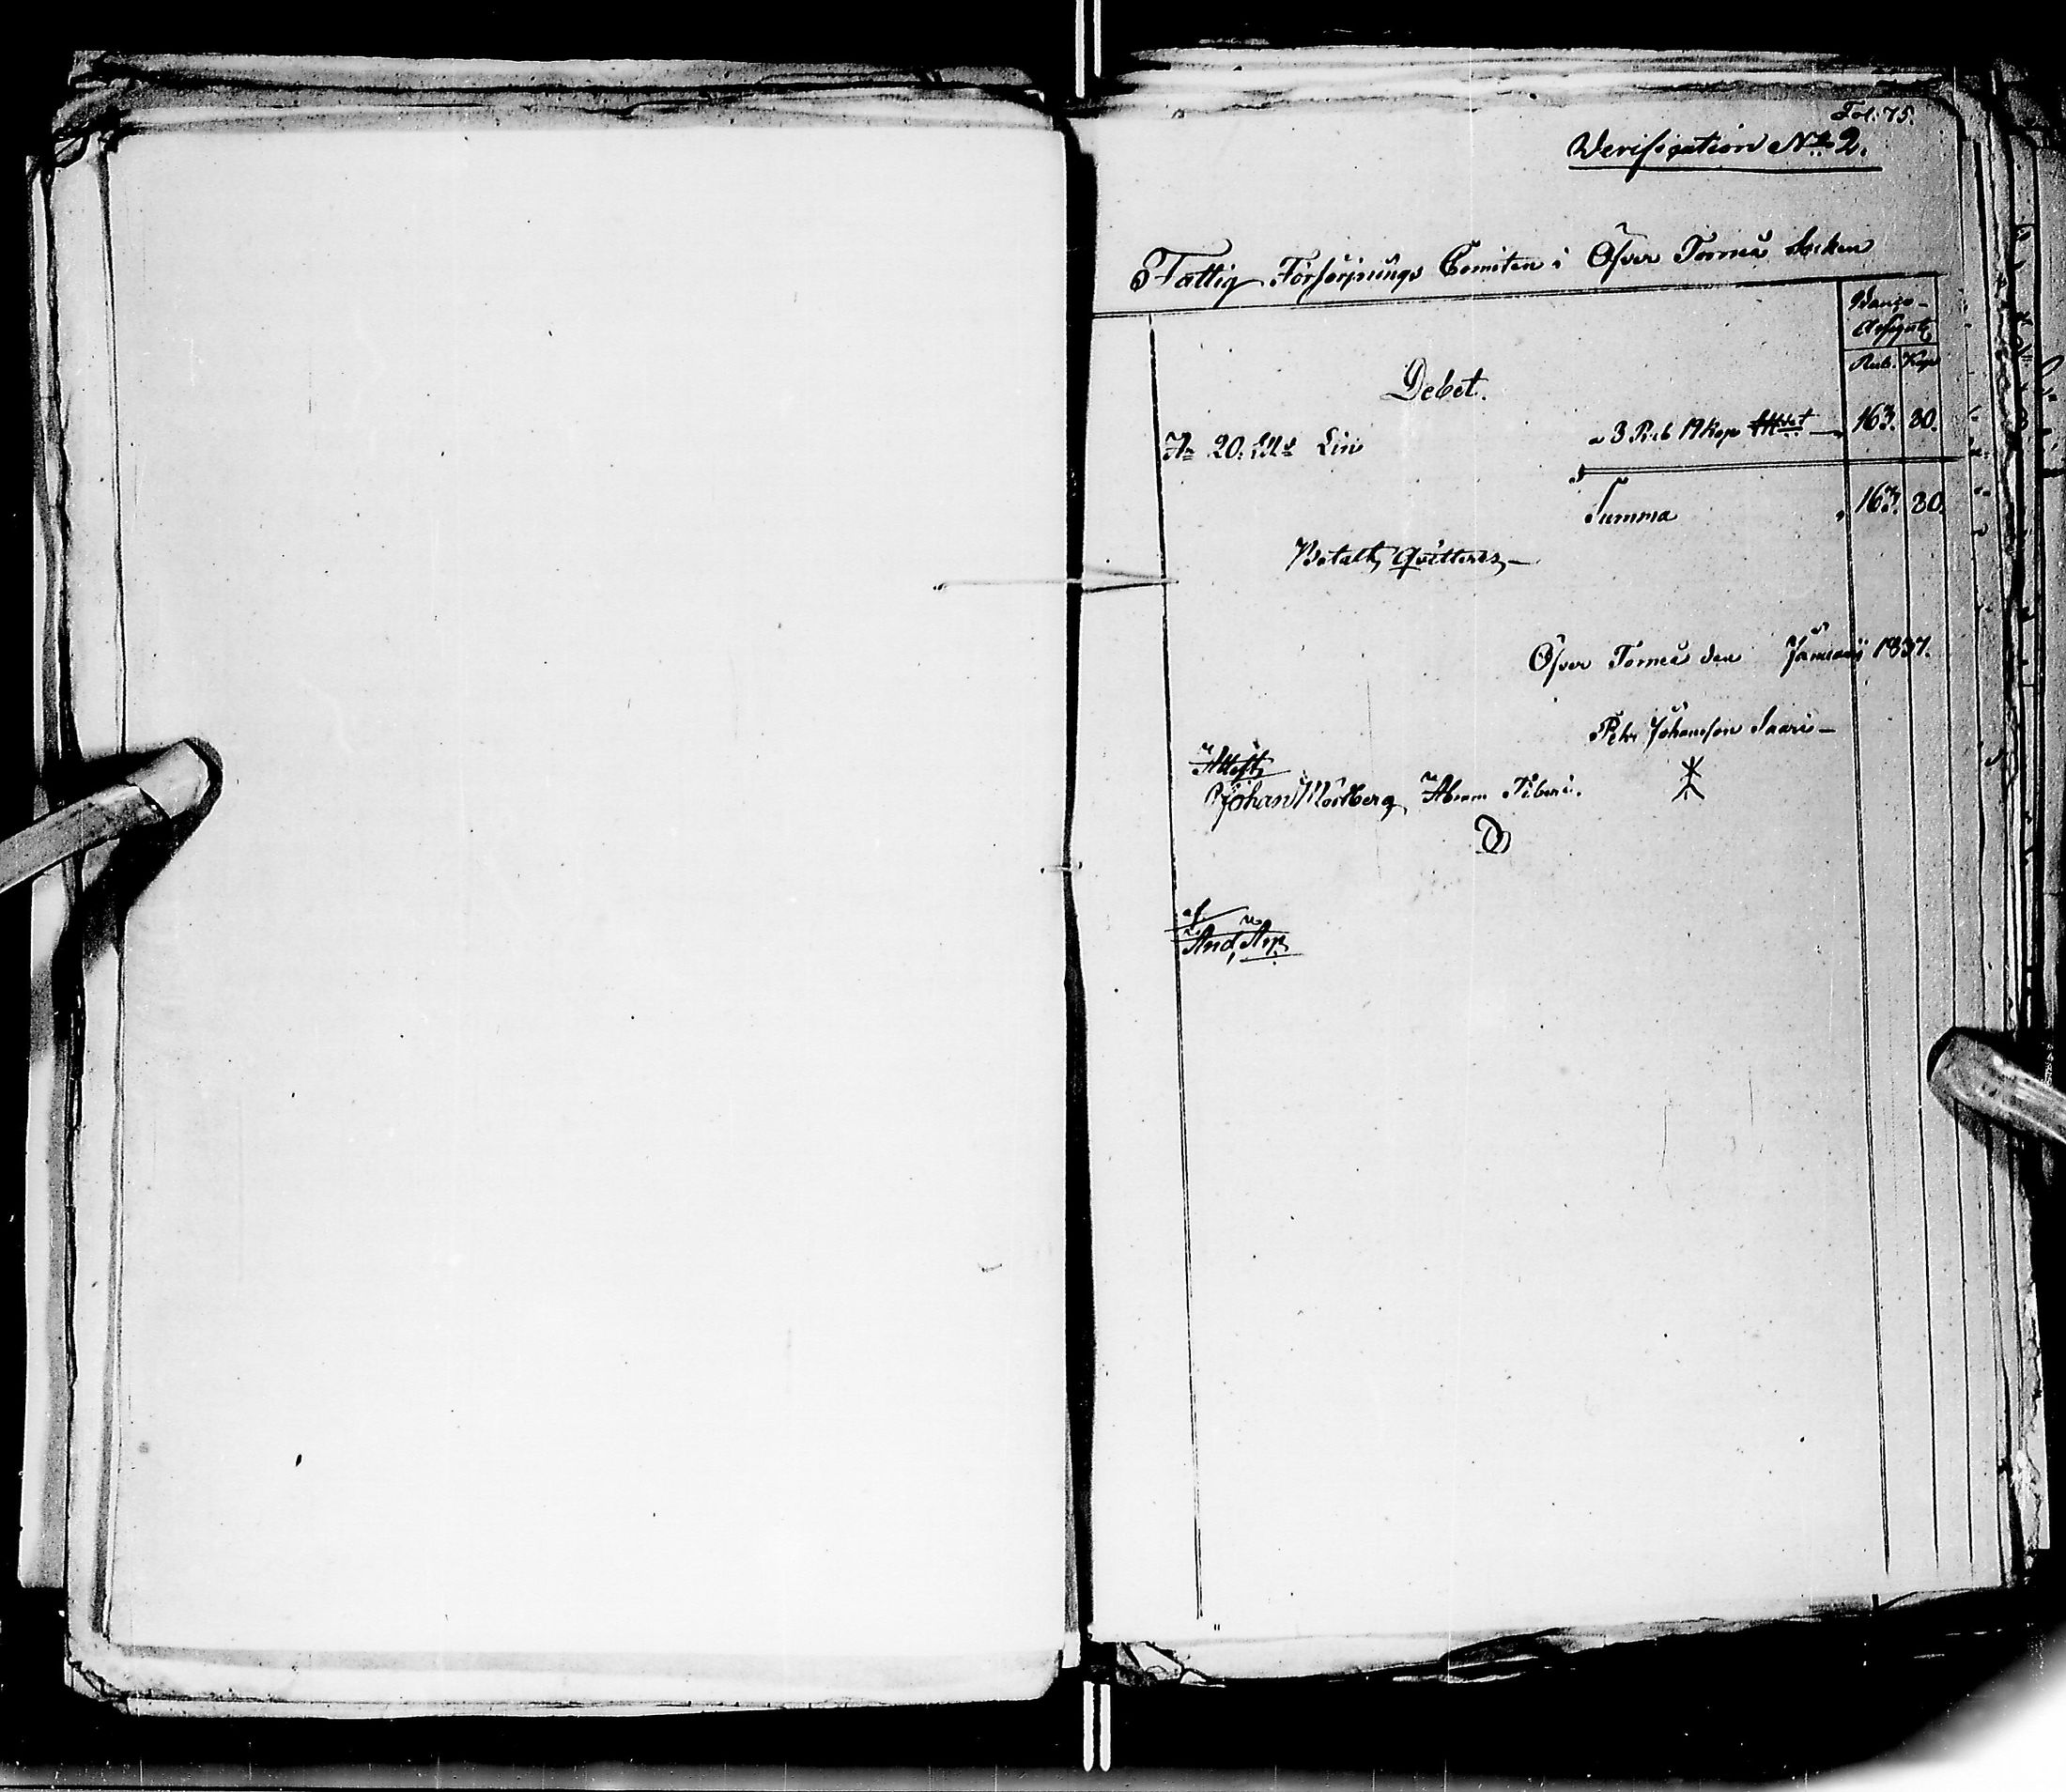 Fol. 75.
Verification No 2.
Fattig Försörjnings Comiten i Öfver Torneå Socken
Banco
Assignat
Rub. Kop
Debet.
20. Lin a 3 Rub 19 Kop 163. 80.
Summa 163. 80.
Betalt, Qvitteras,
Öfver Torneå den Januarij 1837.
Petr Johansson Saari
Attest,
Johan Mörtberg, Abram
And,